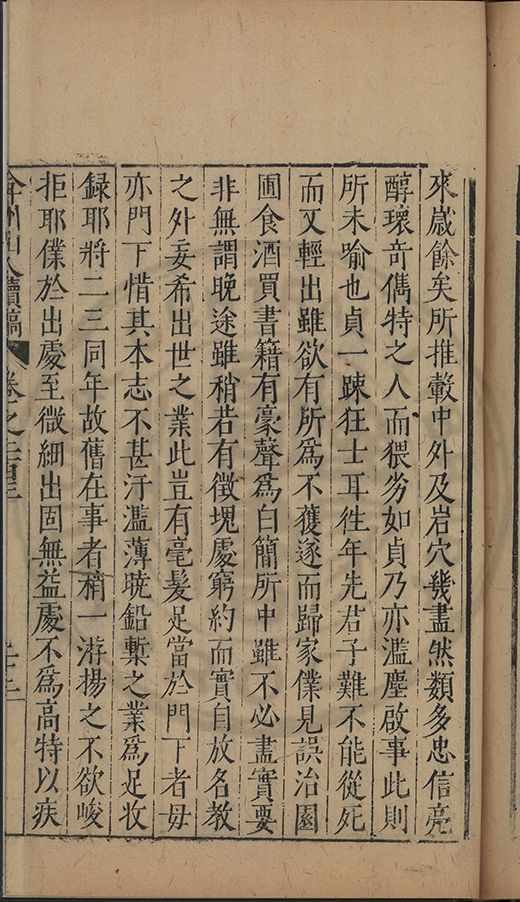 來歲餘矣所推轂中外及岩穴幾盡然類多忠信亮
醇瓌奇儁特之人而猥劣如貞乃亦濫塵啟事此則
所未喻也貞一踈狂士耳徃年先君子難不能從死
而又輕出雖欲有所爲不獲遂而歸家僕見誤治園
圃食酒買書籍有豪聲爲白簡所中雖不必盡實要
非無謂晚途雖稍若有徴塊處窮約而實自放名教
之外妄希出世之業此豈有毫髮足當於門下者毋
亦門下惜其本志不甚汙濫薄曉鉛槧之業爲足收
録耶將二三同年故舊在事者稍一游揚之不欲峻
拒耶僕於出處至微細出固無益處不爲高特以疾
弇州山人續稿 卷之